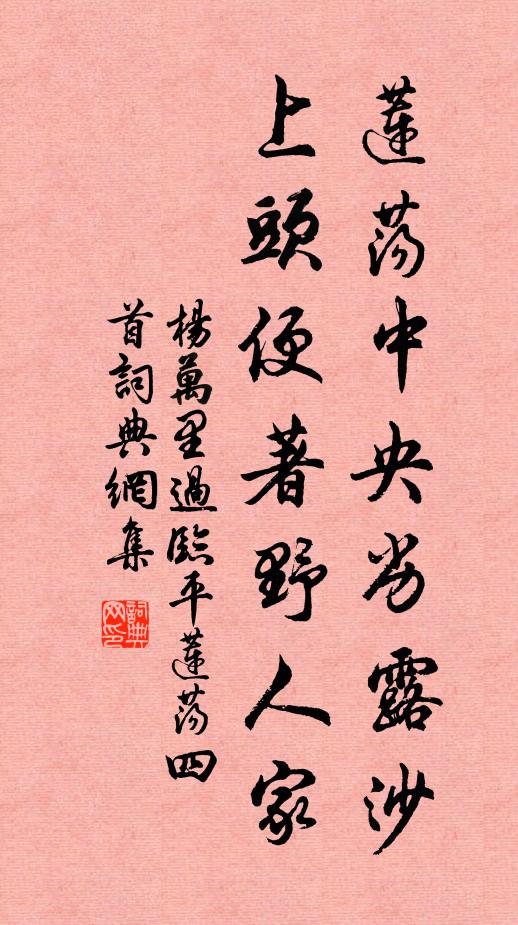 蓮蕩中央劣露沙
上頭便著野人家
楊萬里過臨平蓮蕩四
首詞典網集
詞典
网印